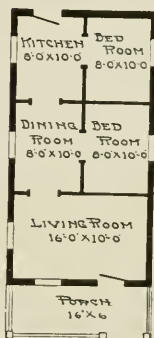 KITCHEN
8'-0"X10'-0"
BED
ROOM
8'-0"X10'-0"
DINING
ROOM
8'-0"X10'-0"
BED
ROOM
8'-0"X10'-0"
LIVING ROOM
16'-0"X10'-0"
PORCH
16'X6'